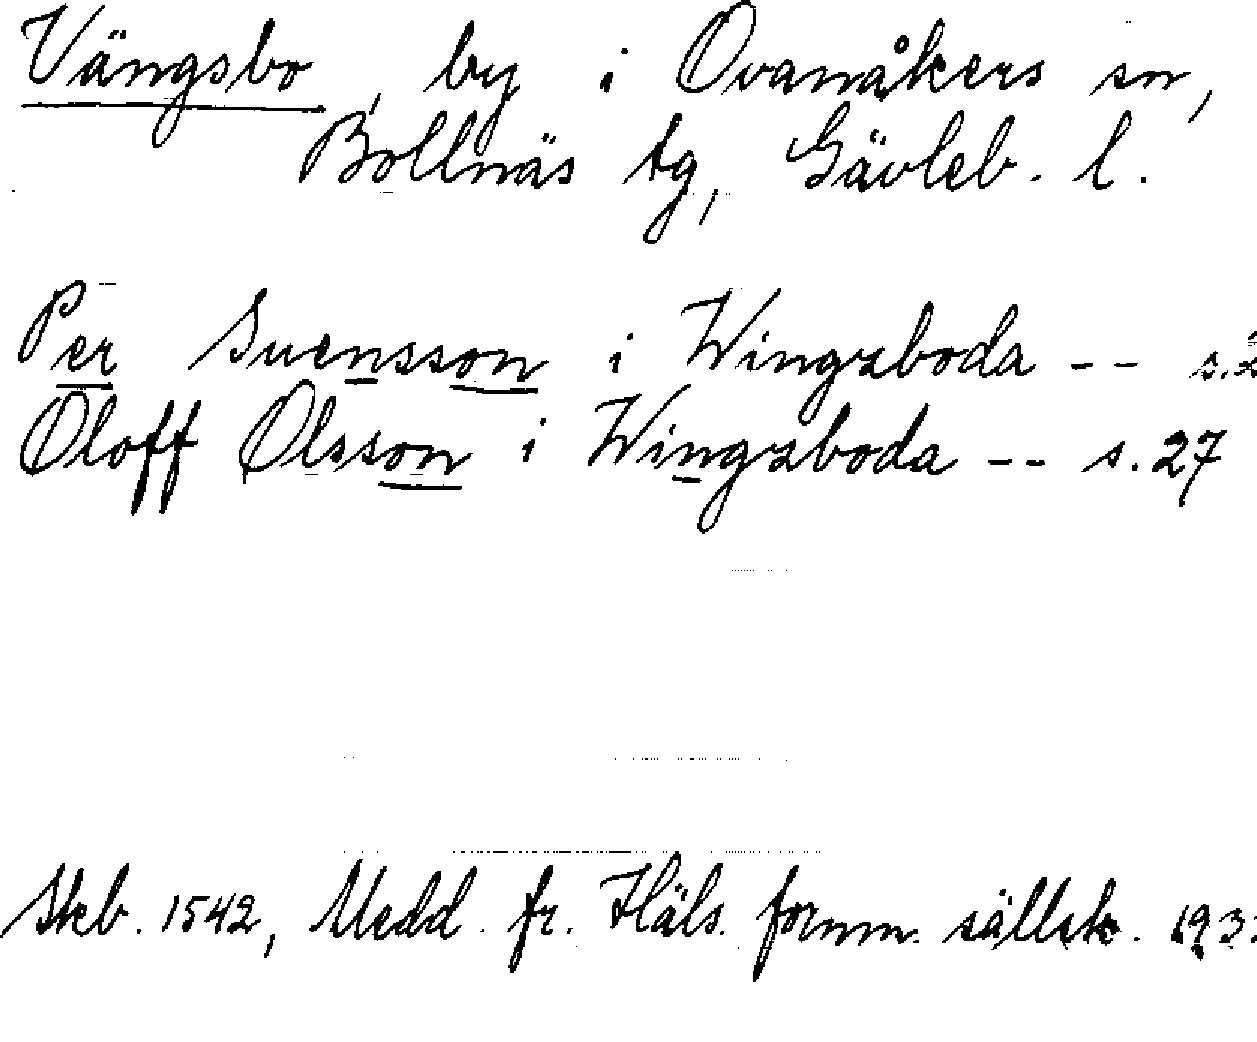 Vängsbo, by i Ovanåkers sn,
Bollnäs tg, Gävleb. l.
Per Suensson i Wingzboda -- s.2
Oloff Olsson i Wingzboda -- s.27
Skb. 1542, Medd. fr. Häls. fornm. sällsk. 193